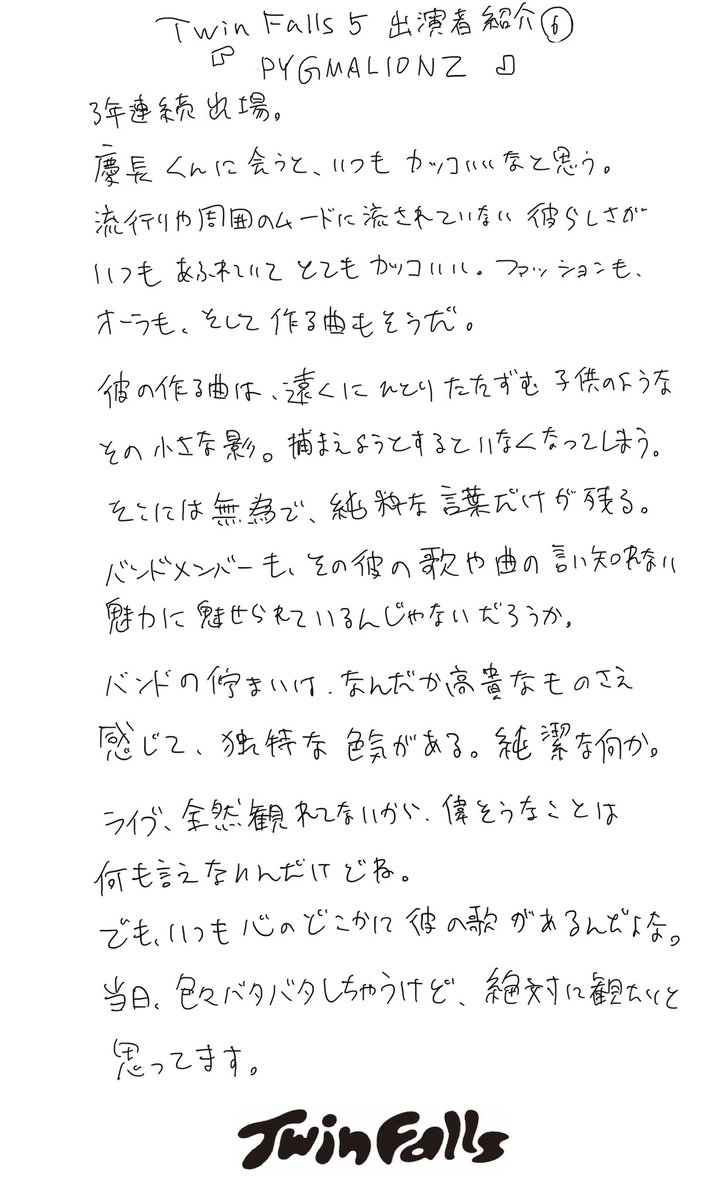 Twin Falls 5 出演者紹介⑥
『 PYGMALIONZ 』
3年連続出場。
慶長くんに会うと、いつもカッコいいなと思う。
流行りや周囲のムードに流されていない彼らしさが
いつもあふれていてとてもカッコいい。ファッションも、
オーラも、そして作る曲もそうだ。
彼の作る曲は、遠くにひとりたたずむ子供のような
その小さな影。捕まえようとするといなくなってしまう。
そこには無為で、純粋な言葉だけが残る。
バンドメンバーも、その彼の歌や曲の言い知れない
魅力に魅せられているんじゃないだろうか。
バンドの佇まいは、なんだか高貴なものさえ
感じて、独特な色気がある。純潔な何か。
ライブ、全然観れてないから、偉そうなことは
何も言えないんだけどね。
でも、いつも心のどこかに彼の歌があるんだよな。
当日、色々バタバタしちゃうけど、絶対に観たいと
思ってます。
Twin Falls